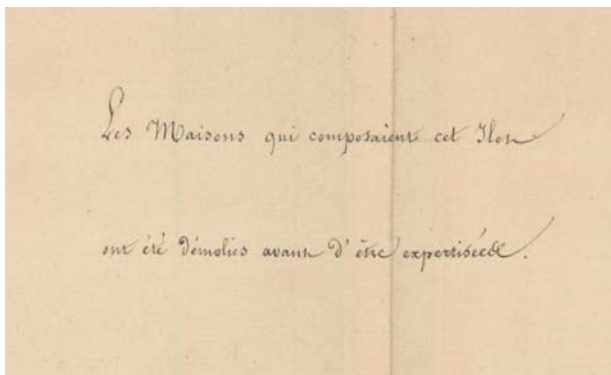 Les Maisons qui composaient cet Ilot
ont été démolies avant d'être expertisées.